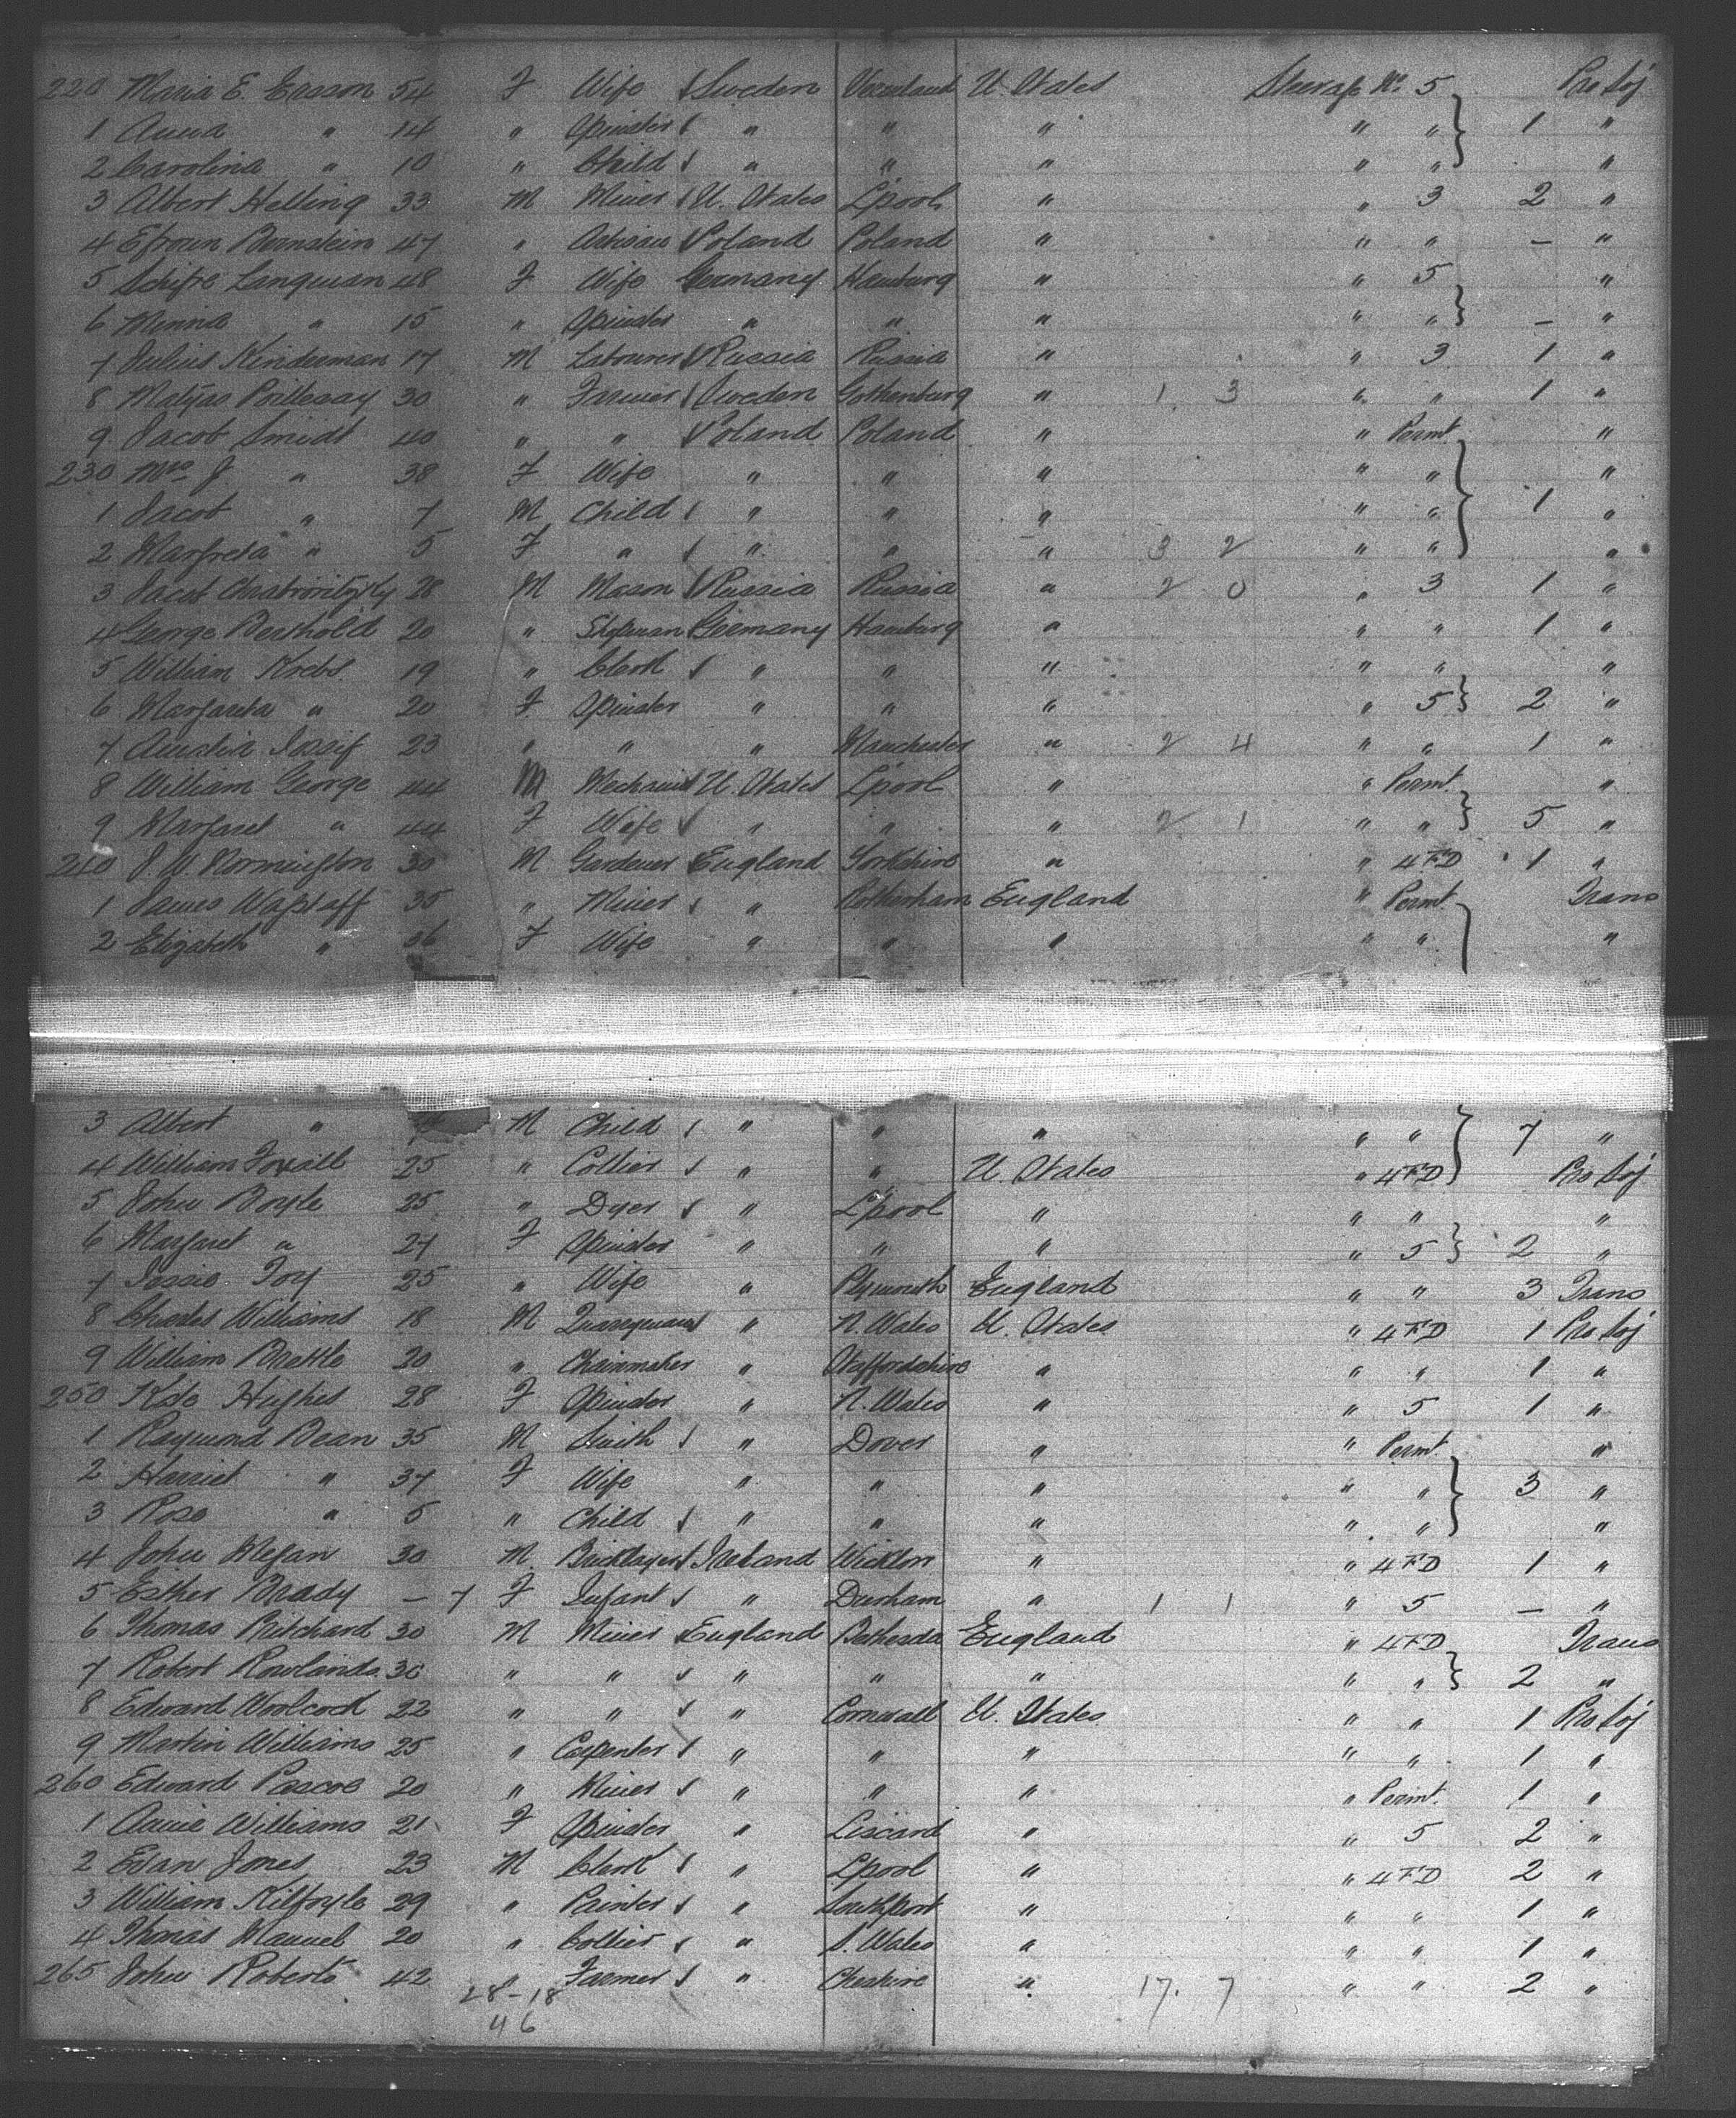 220 Maria E. Easson 54 F Wife Sweden U. States Steerage No. 5 Pro Soj
1 Anna " 14 " Spinster " " " " " 1 "
2 Carolina " 10 " Child " " " " " "
3 Albert Helling 33 M Miner U. States L'pool " " 3 2 "
4 Bernstein 47 " Artisan Poland Poland " " " — "
5 Schifre Langman 48 F Wife Germany Hamburg " " 5 "
6 Minna " 15 " Spinster " " " " " — "
7 Julius Kinderman 17 M Labourer Russia Russia " " 3 1 "
8 Matyas 30 " Farmer Sweden Gothenburg " 1 3 " " 1 "
9 Jacob Smidt 40 " " Poland Poland " " Permt. "
230 Mrs J " 38 F Wife " " " " " "
1 Jacob " 7 M Child " " " " " 1 "
2 Margreta " 5 F " " " " 3 2 " " "
3 Jacob 28 M Mason Russia Russia " 2 0 " 3 1 "
4 George Berthold 20 " Germany Hamburg " " " 1 "
5 William Krebs. 19 " Clerk " " " " " "
6 Margareta " 20 F Spinster " " " " 5 2 "
7 23 " " " Manchester " 2 4 " " 1 "
8 William George 44 M Mechanic U. States L'pool " " Permt. "
9 Margaret " 44 F Wife " " " 2 1 " " 5 "
240 J. W. Normington 30 M Gardener England Yorkshire " " 4 FD 1 "
1 James Wagstaff 35 " Miner " Rotherham England " Permt. Trans
2 Elizabeth " 36 F Wife " " " " " "
3 Albert " M Child " " " " " 7 "
4 William Foxall 25 " Collier " " U. States " 4 FD Pro Soj
5 John Boyle 25 " Dyer " L'pool " " " "
6 Margaret " 27 F Spinster " " " " 5 2 "
7 Jessie Toy 25 " Wife " Plymouth England " " 3 Trans
8 Charles Williams 18 M Quarryman " N. Wales U. States " 4 FD 1 Pro Soj
9 William Brettle 20 " Chainmaker " Staffordshire " " " 1 "
250 Kate Hughes 28 F Spinster " N. Wales " " 5 1 "
1 Raymond Bean 35 M Smith " Dover " " Permt. "
2 Harriet " 37 F Wife " " " " " 3 "
3 Rose " 5 " Child " " " " " "
4 John Megan 30 M Bricklayer Ireland Wicklow " " 4 FD 1 "
5 Esther Brady — 7 F Infant " Durham " 1 1 " 5 — "
6 Thomas Pritchard 30 M Miner England Bethesda England " 4 FD Trans
7 Robert Rowlands 30 " " " " " " " 2 "
8 Edward Woolcock 22 " " " Cornwall U. States " " 1 Pro Soj
9 Martin Williams 25 " Carpenter " " " " " 1 "
260 Edward Pascoe 20 " Miner " " " " Permt. 1 "
1 Annie Williams 21 F Spinster " Liscard " " 5 2 "
2 Evan Jones 23 M Clerk " L'pool " " 4 FD 2 "
3 William Kilfoyle 29 " Painter " Southport " " " 1 "
4 Thomas Manuel 20 " Collier " S. Wales " " " 1 "
265 John Roberts 42 " Farmer " Cheshire " 17. 7 " " 2 "
28-18
46